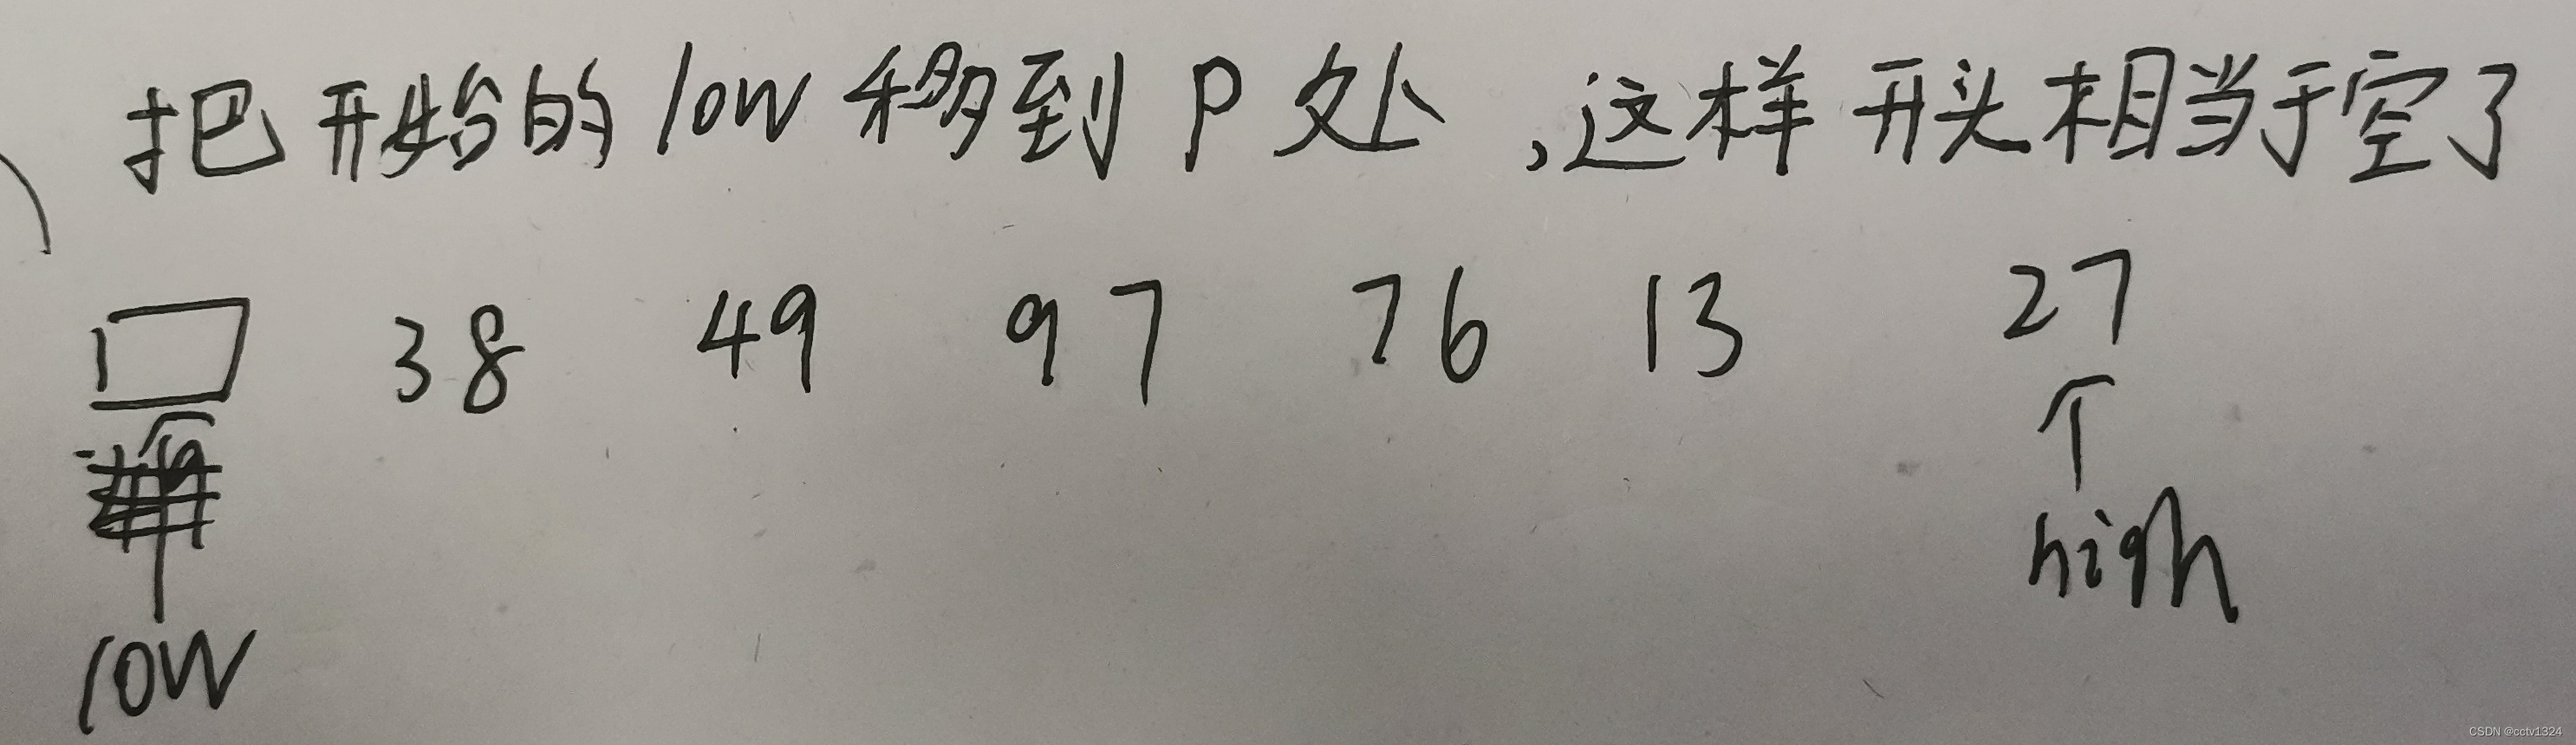 把开始的low移到P处,这样开头相当于空了
38 49 97 76 13 27
high
low
CSDN @cctv1324